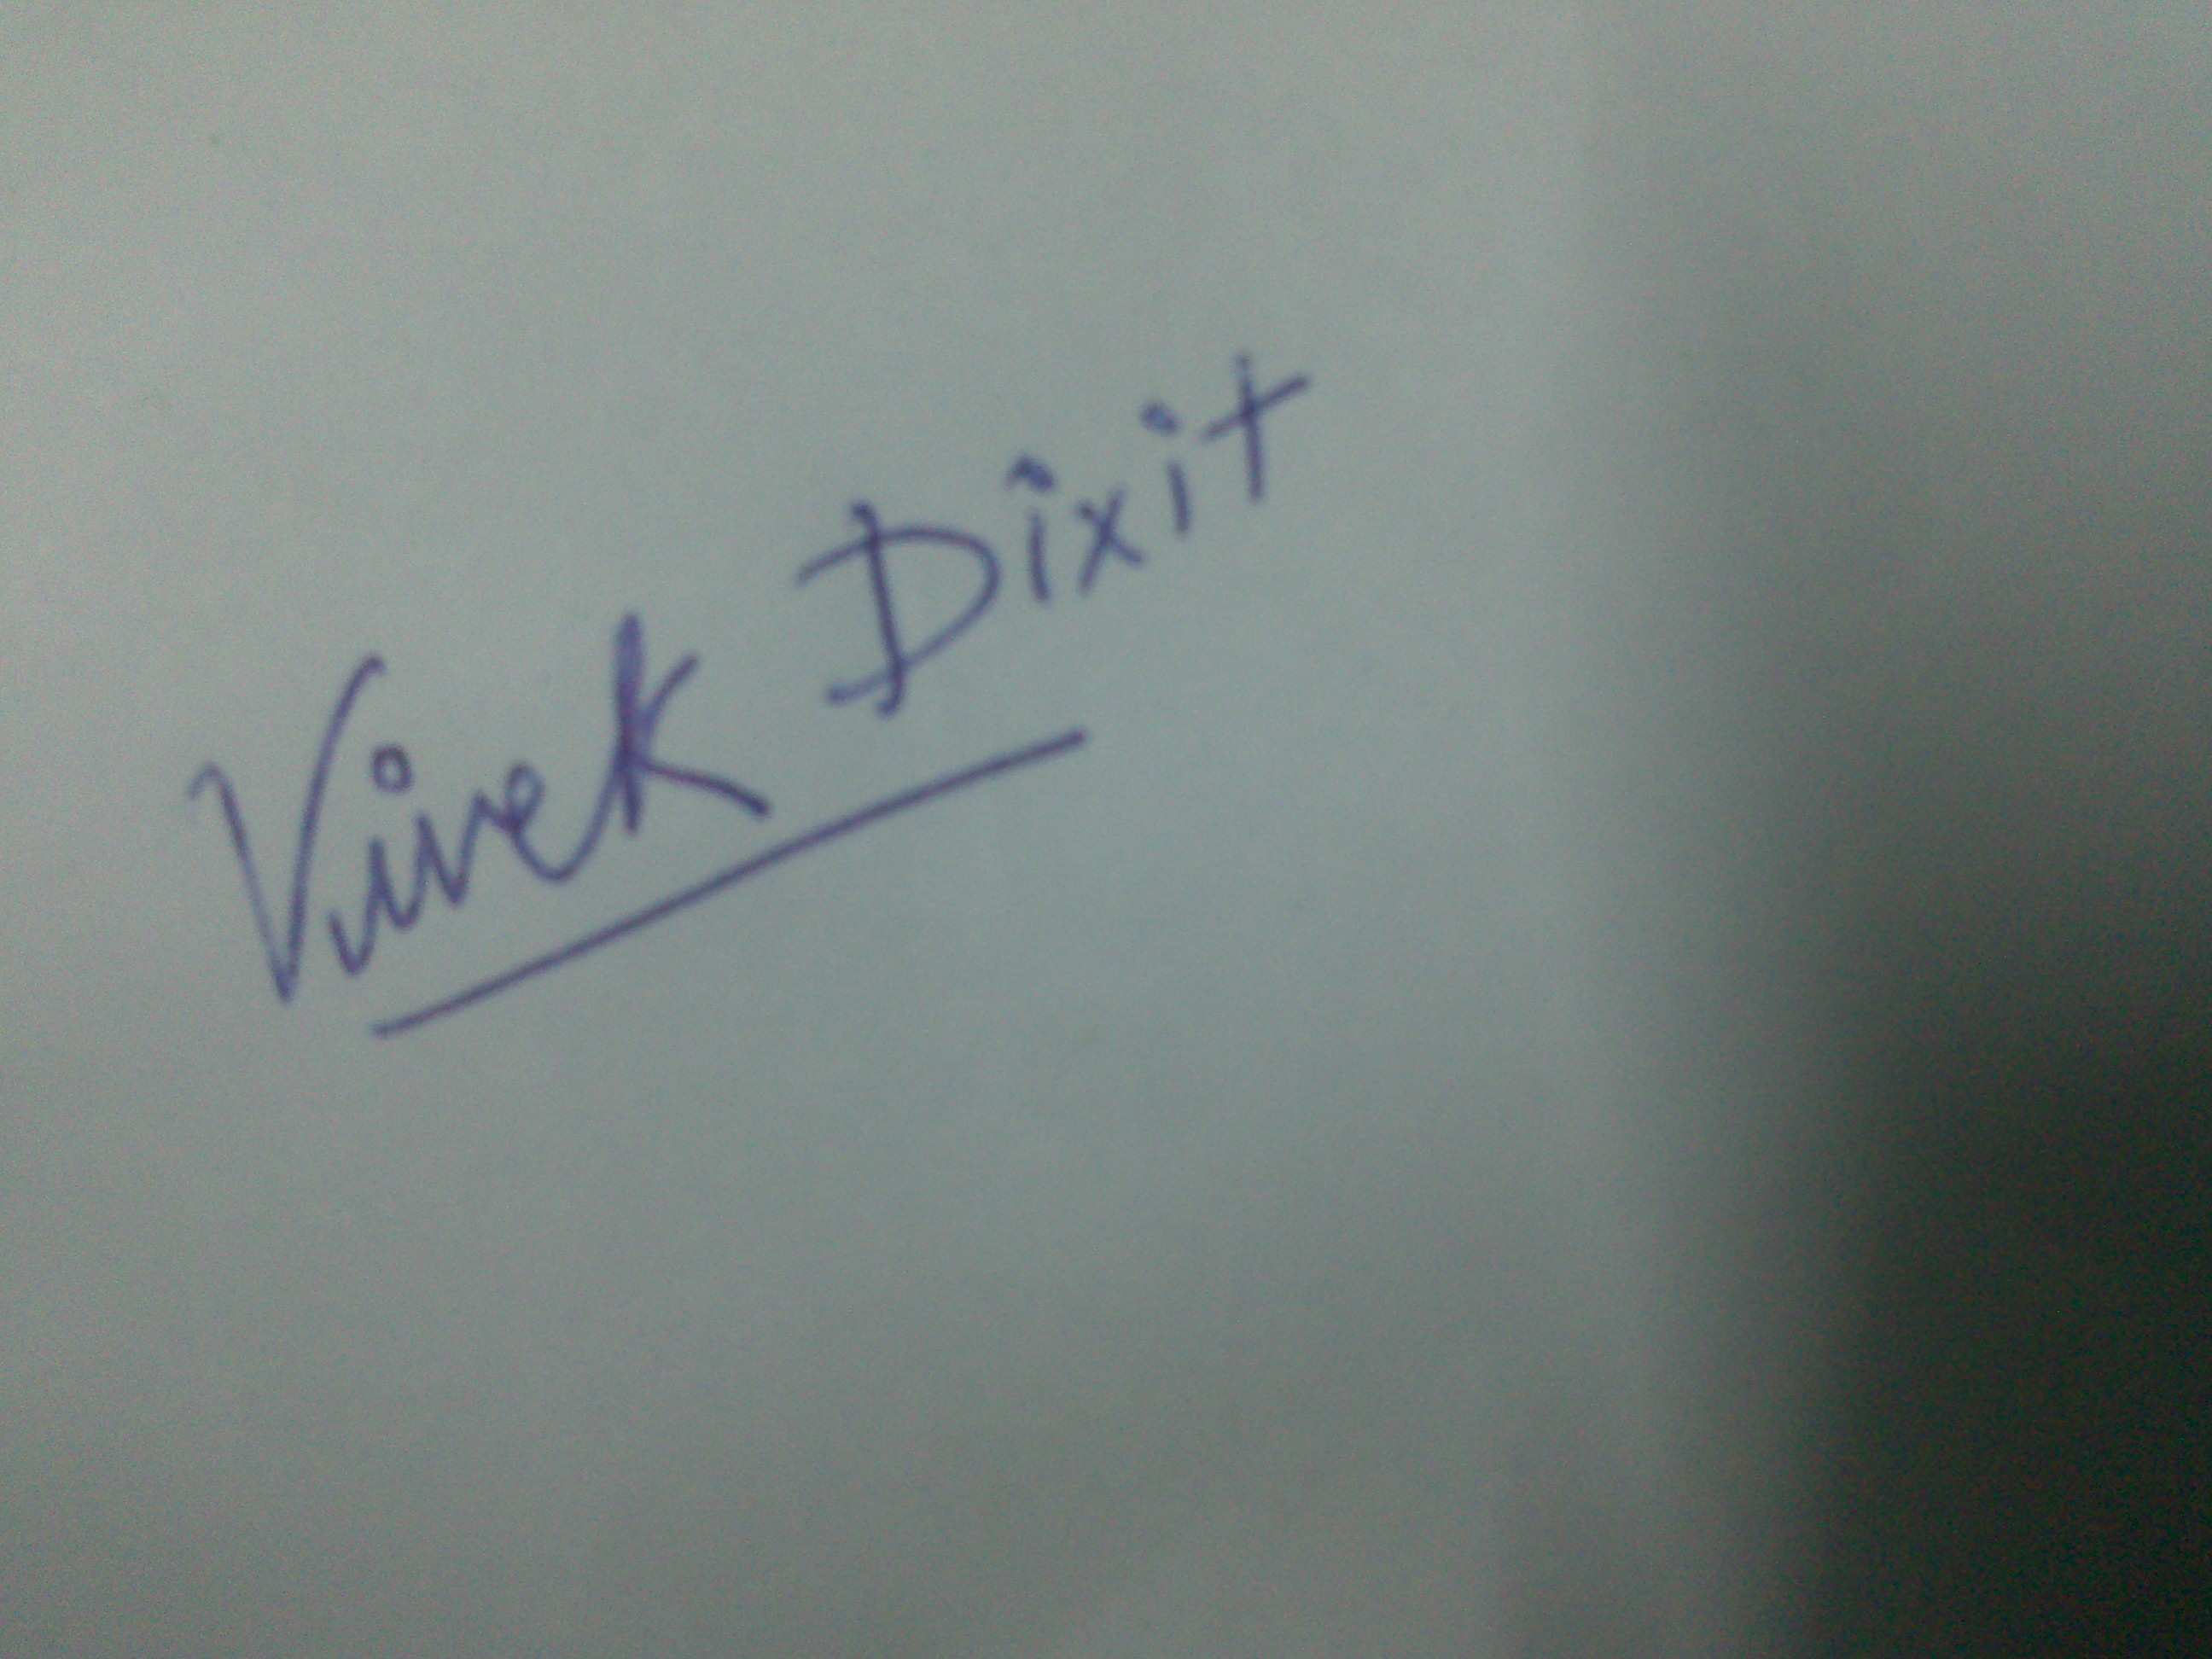 Vivek Dixit